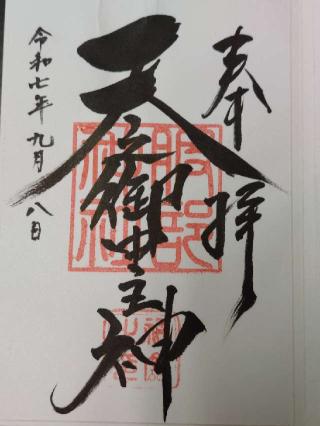 奉拝
天之御中主神
令和七年九月八日